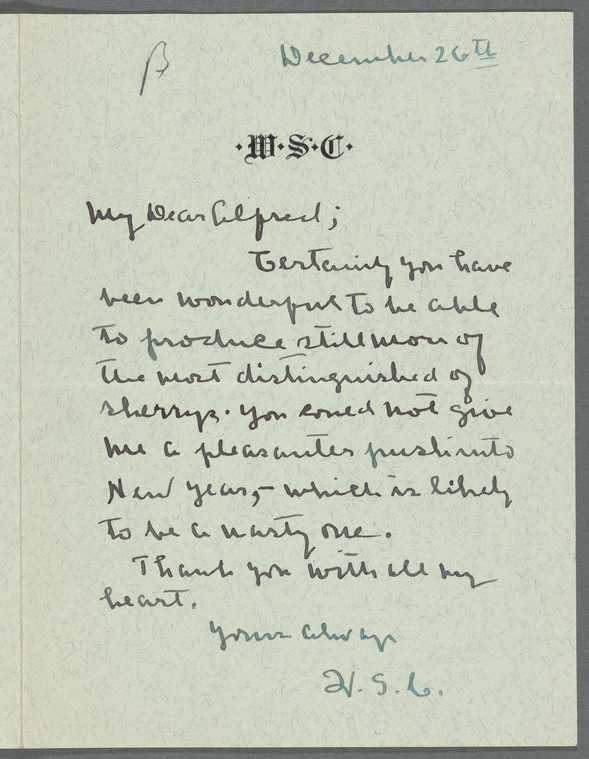 β
December 26th
·W·S·C·
My Dear Alfred;
Certainly you have
been wonderful to be able
to produce still more of
the most distinguished of
sherrys. You could not give
me a pleasanter push into
New Year, – which is likely
to be a nasty one.
Thank you with all my
heart.
Yours always
W. S. C.